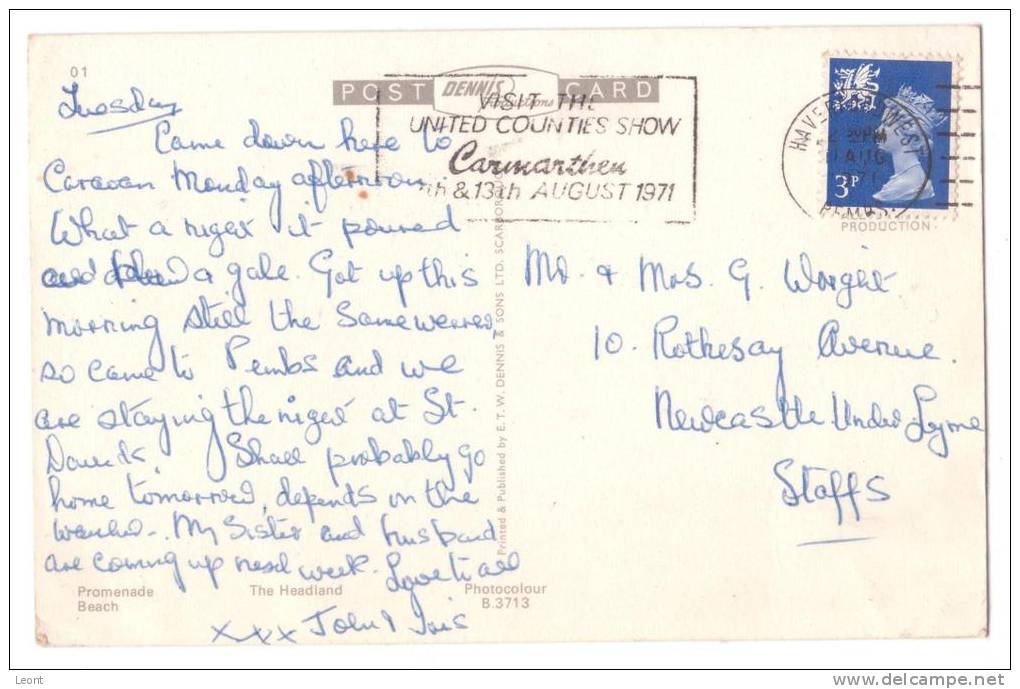 01
POST DENNIS Productions CARD
VISIT THE
UNITED COUNTIES SHOW
Carmarthen
th & 13th AUGUST 1971
PM
AUG
3P
PRODUCTION
Tuesday
Came down here to
Caravan Monday afternoon
What a night it poured
and a gale. Got up this
morning still the same
so came to Pembs and we
are staying the night at St.
Davids. Shall probably go
home tomorrow, depends on the
My Sister and husband
are coming up next week. Love to all
xxx John & Iris
Mr. & Mrs G. Wright
10. Rothesay Avenue.
Newcastle Under Lyme
Staffs
Printed & Published by E. T. W. DENNIS & SONS LTD. SCARBORO
Promenade
Beach
The Headland
Photocolour
B.3713
Leont
http://www.delcampe.net